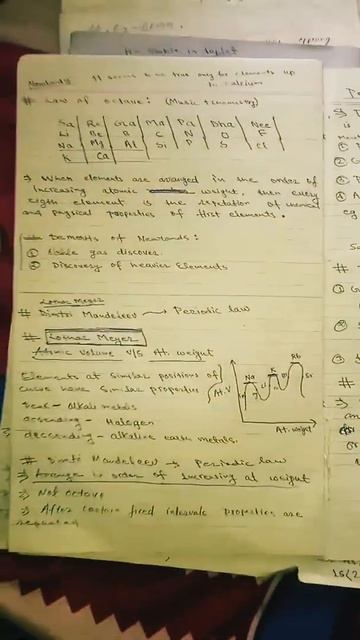 Newlands It seems to be true only for elements up to calcium
# Law of octave: (Music + chemistry)
Sa Re Ga Ma Pa Dha Nee
Li Be B C N O F
Na Mg Al Si P S Cl
K Ca
⇒ When elements are arranged in the order of
increasing atomic weight, then every
eigth element is the repetation of chemical
and physical properties of first elements.
Demerits of Newlands:
① Noble gas discover.
② Discovery of heavier Elements
Lothar Meyer
# Dimtri Mandeleev → Periodic law
# Lothar Meyer
Atomic volume v/s At. weight
Elements at similar positions of
curve have similar properties
Peak - Alkali metals
ascending - Halogen
decending - alkaline earth metals.
At. V
Na K Rb
At. weight
# Mandeleev → Periodic law
⇒ Arrange in order of increasing at weight
⇒ Not octave
⇒ After certain fixed intervals properties are
repeated